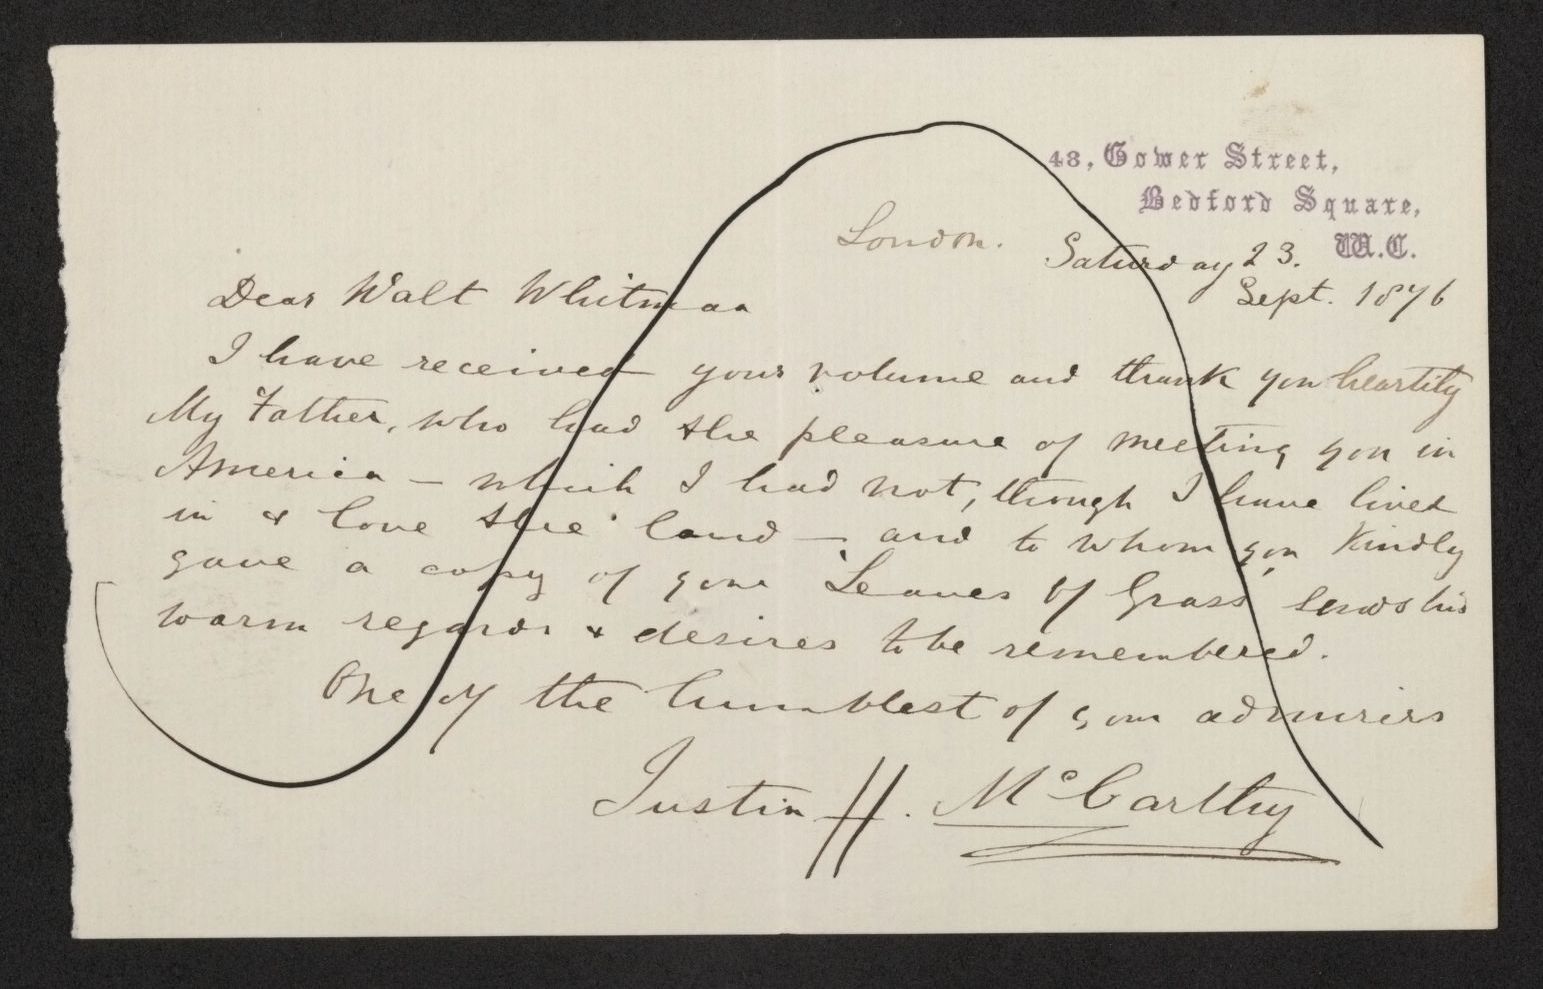 48, Gower Street,
Bedford Square,
W.C.
London. Saturday 23.
Sept. 1876
Dear Walt Whitman
I have received your volume and thank you heartily
My Father, who had the pleasure of meeting you in
America — which I had not, though I have lived
in & love the land — and to whom you kindly
gave a copy of your 'Leaves of Grass' sends his
warm regards & desires to be remembered.
One of the humblest of your admirers
Justin H. McCarthy